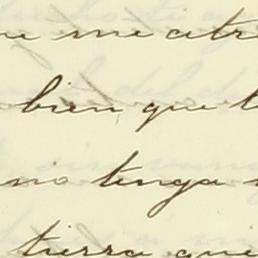 me atr
bien que t
no tenga
tierra que